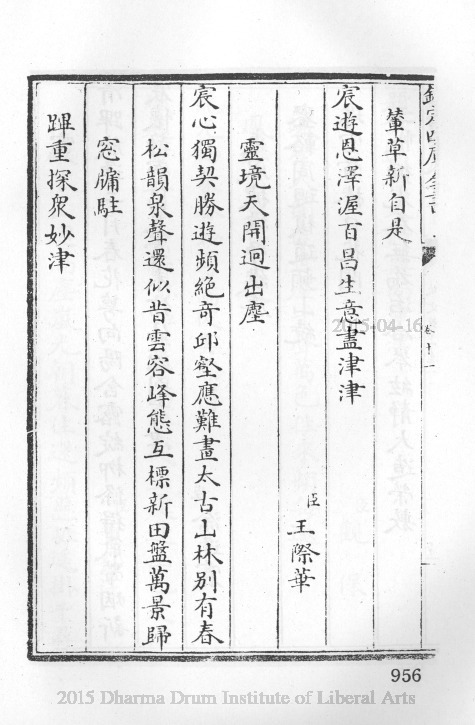 欽定四庫全書
卷十一
輦草新自是
宸遊恩澤渥百昌生意盡津津
臣王際華
靈境天開迥出塵
宸心獨契勝遊頻絶奇邱壑應難畫太古山林别有春
松韻泉聲還似昔雲容峰態互標新田盤萬景歸
窓牖駐
蹕重探衆妙津
2015-04-16
956
2015 Dharma Drum Institute of Liberal Arts